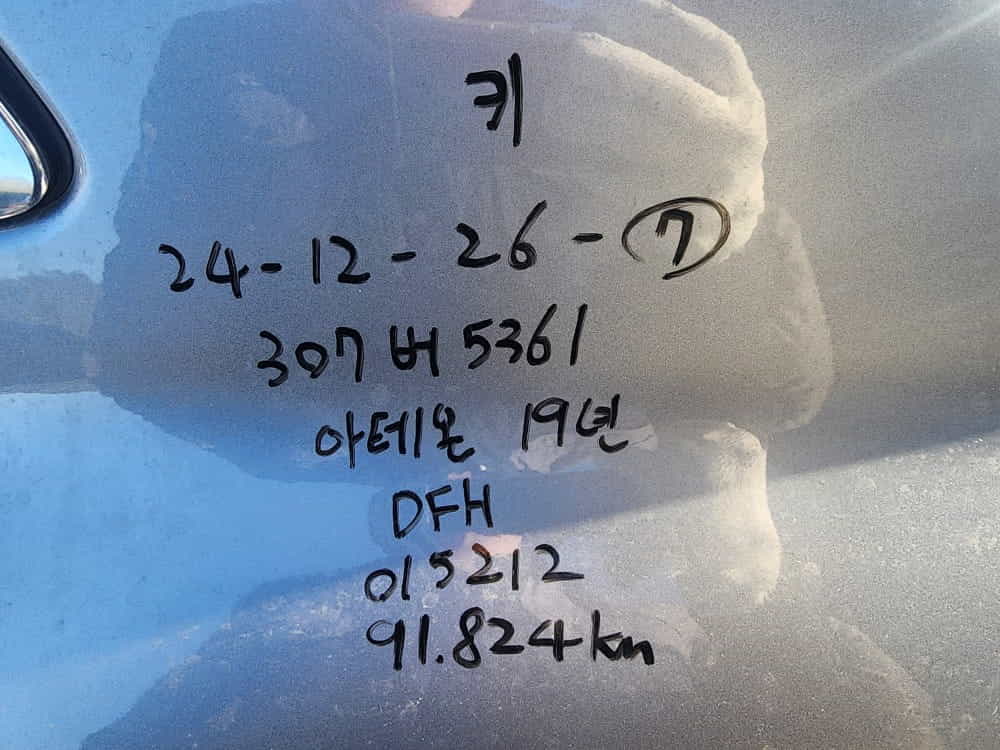 키
24-12-26-⑦
307버5361
아테온 19년
DFH
015212
91.824km